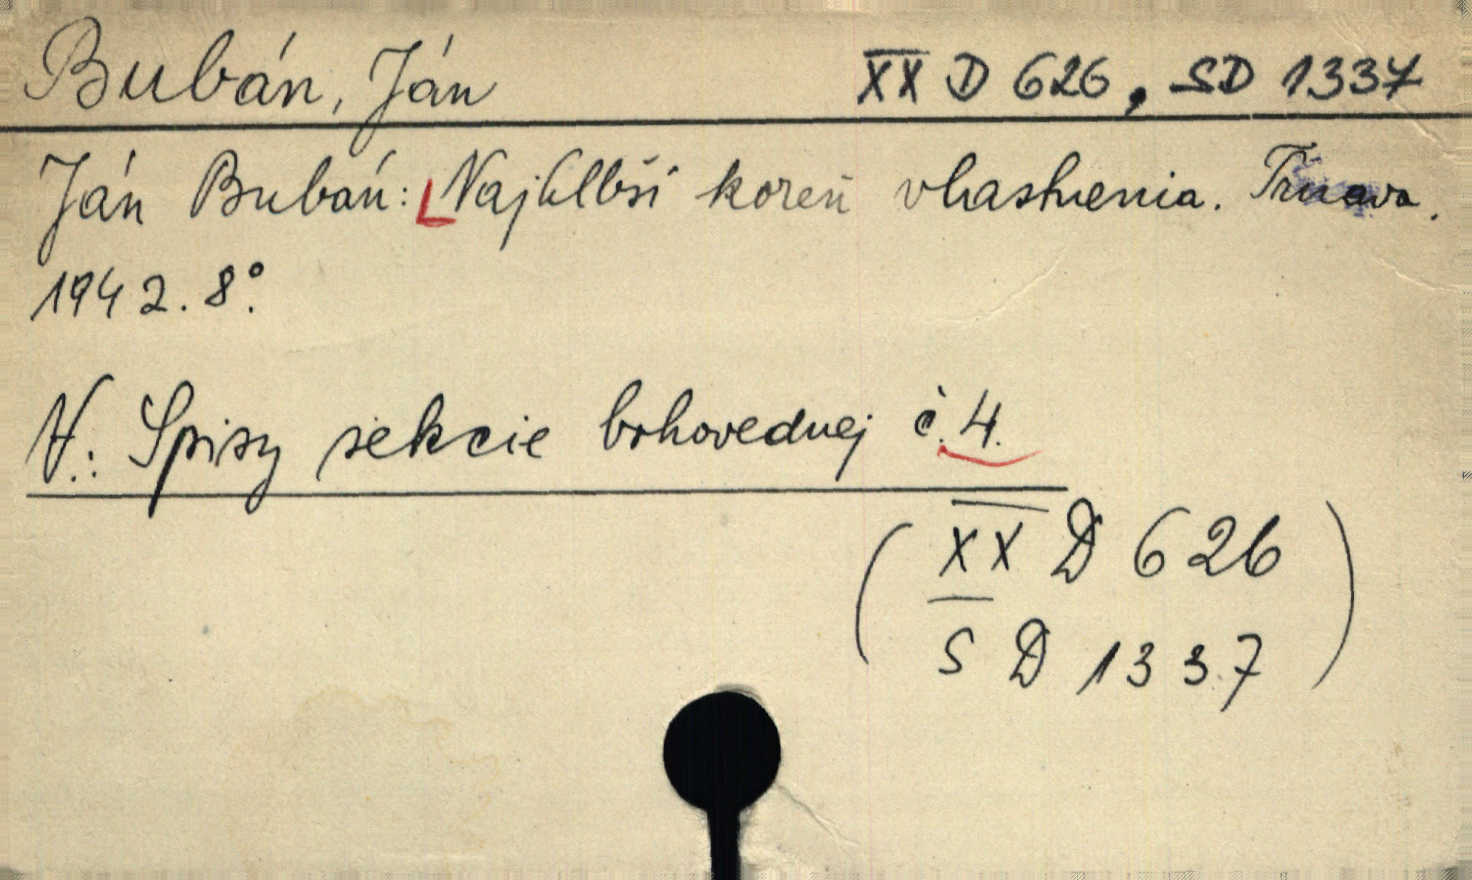 Bubán, Ján XX D 626, SD 1337
Ján Bubán: Najhlbší koreň vlastnenia. Trnava.
1942. 8°.
V.: Spisy sekcie bohovednej č. 4.
( XX D 626
S D 1337 )